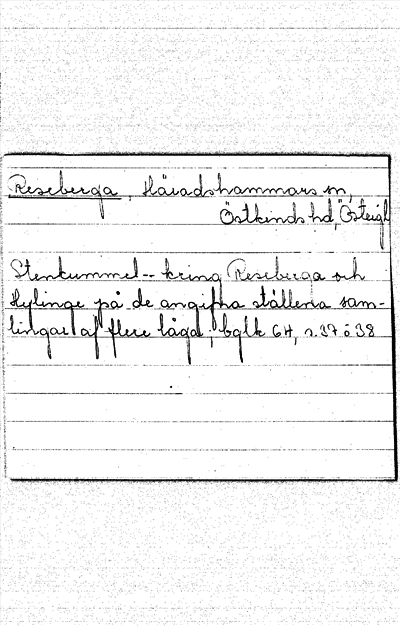 Reseberga, Häradshammars sn,
Östkinds hd, Östergl
Stenkummel -- kring Reseberga och
Hylinge på de angifna ställena sam-
lingar af flere lågd; bglk 64, n. 37 o 38